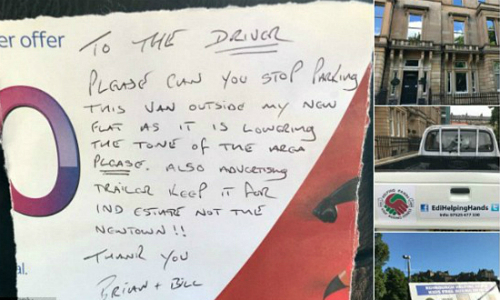 er offer
TO THE DRIVER
PLEASE CAN YOU STOP PARKING
THIS VAN OUTSIDE MY NEW
FLAT AS IT IS LOWERING
THE TONE OF THE AREA
PLEASE. ALSO ADVERTISING
TRAILER KEEP IT FOR
IND ESTATE NOT THE
NEWTOWN!!
THANK YOU
BRIAN + BILL
al.
EdiHelpingHands